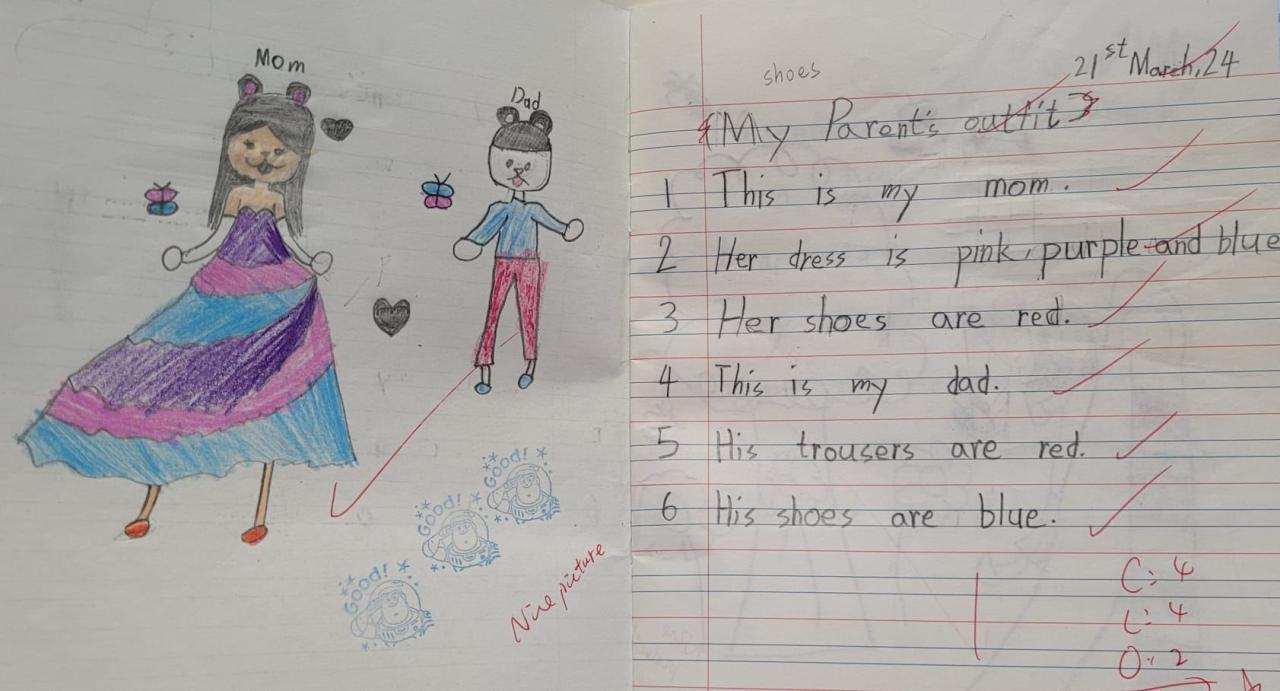 Mom
Dad
Good!
Good!
Good!
Nice picture
shoes
21st March, 24
{My Parent's outfit}
1 This is my mom.
2 Her dress is pink, purple and blue
3 Her shoes are red.
4 This is my dad.
5 His trousers are red.
6 His shoes are blue.
C: 4
L: 4
O: 2